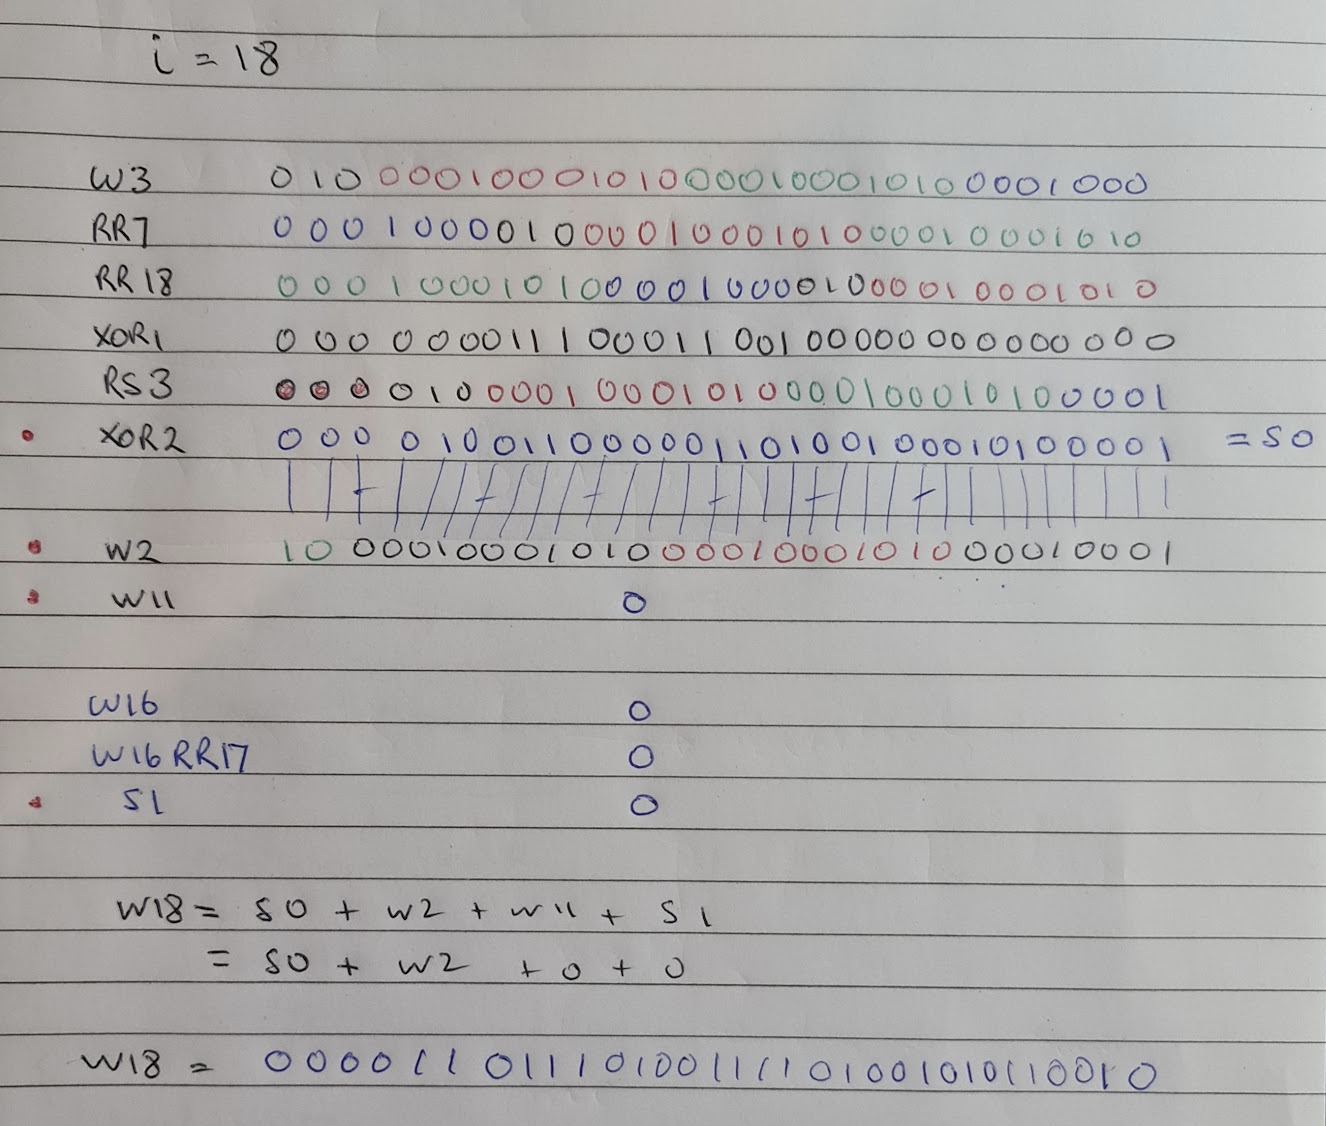 i = 18
W3 01000010001010000100010100001000
RR7 00010000100001000101000010001010
RR18 00010001010000100001000010001010
XOR1 00000001110001100100000000000000
RS3 00001000010001010000100010100001
XOR2 00001001100000110100100010100001 = S0
W2 10000100010100001000101000010001
W11 0
W16 0
W16 RR17 0
S1 0
W18 = S0 + W2 + W11 + S1
= S0 + W2 + 0 + 0
W18 = 00001101110100111101001010110010